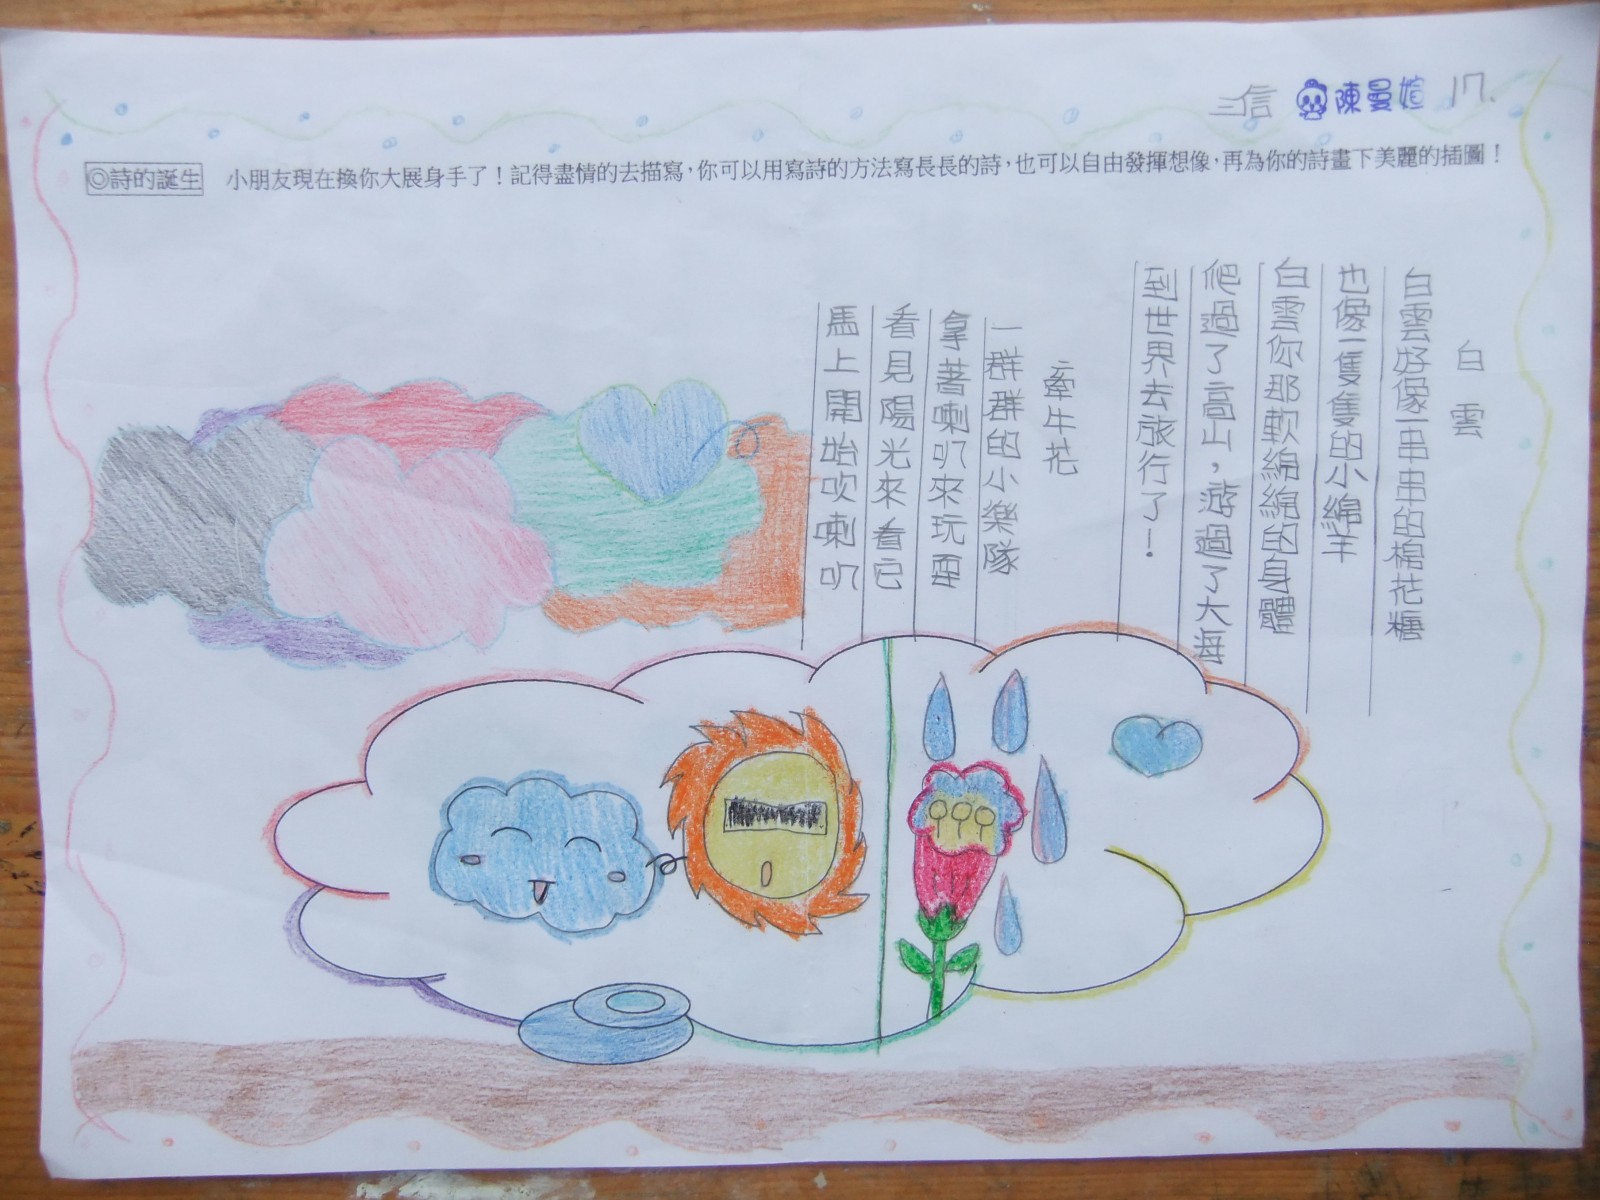 三信 陳曼媗 17.
◎詩的誕生 小朋友現在換你大展身手了！記得盡情的去描寫，你可以用寫詩的方法寫長長的詩，也可以自由發揮想像，再為你的詩畫下美麗的插圖！
白雲
白雲好像一串串的棉花糖
也像一隻隻的小綿羊
白雲你那軟綿綿的身體
爬過了高山，游過了大海
到世界去旅行了！
牽牛花
一群群的小樂隊
拿著喇叭來玩耍
看見陽光來看它
馬上開始吹喇叭